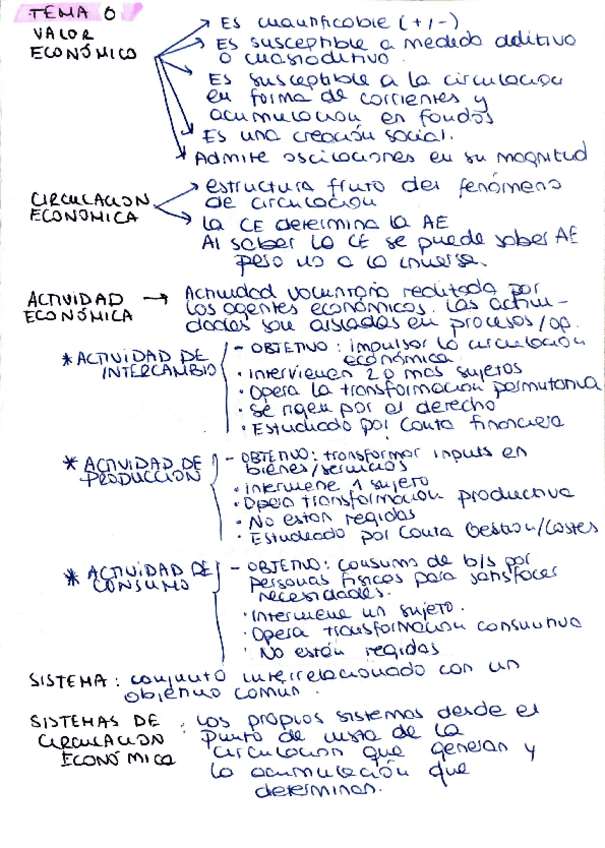 TEMA 0
VALOR
ECONÓMICO
Es cuantificable (+/-)
Es susceptible a medida aditiva
o cuasiaditiva.
Es susceptible a la circulacion
en forma de corrientes y
acumulacion en fondos
Es una creación social.
Admite oscilaciones en su magnitud
CIRCULACION
ECONOMICA
estructura fruto del fenómeno
de circulacion
La CE determina la AE
Al saber la CE se puede saber AE
pero no a la inversa.
ACTIVIDAD
ECONÓMICA
Actividad voluntaria realizada por
los agentes económicos. Las activi-
dades son aisladas en procesos/op.
* ACTIVIDAD DE
INTERCAMBIO
- OBJETIVO: impulsar la circulación
económica
· intervienen 2 o mas sujetos
· Opera la transformacion permutativa
· Se rigen por el derecho
· Estudiado por Conta financiera
* ACTIVIDAD DE
PRODUCCION
- OBJETIVO: transformar inputs en
bienes/servicios
· interviene 1 sujeto
· Opera transformacion productiva
· No estan regidas
· Estudiado por Conta Gestion/Costes
* ACTIVIDAD DE
CONSUMO
- OBJETIVO: Consumo de b/s por
personas físicas para satisfacer
necesidades.
· Interviene un sujeto.
· Opera transformacion consuntiva
· No están regidas
SISTEMA: conjunto interrelacionado con un
objetivo comun.
SISTEMAS DE
CIRCULACION
ECONÓMICA
: Los propios sistemas desde el
punto de vista de la
circulacion que generan y
la acumulación que
determinan.